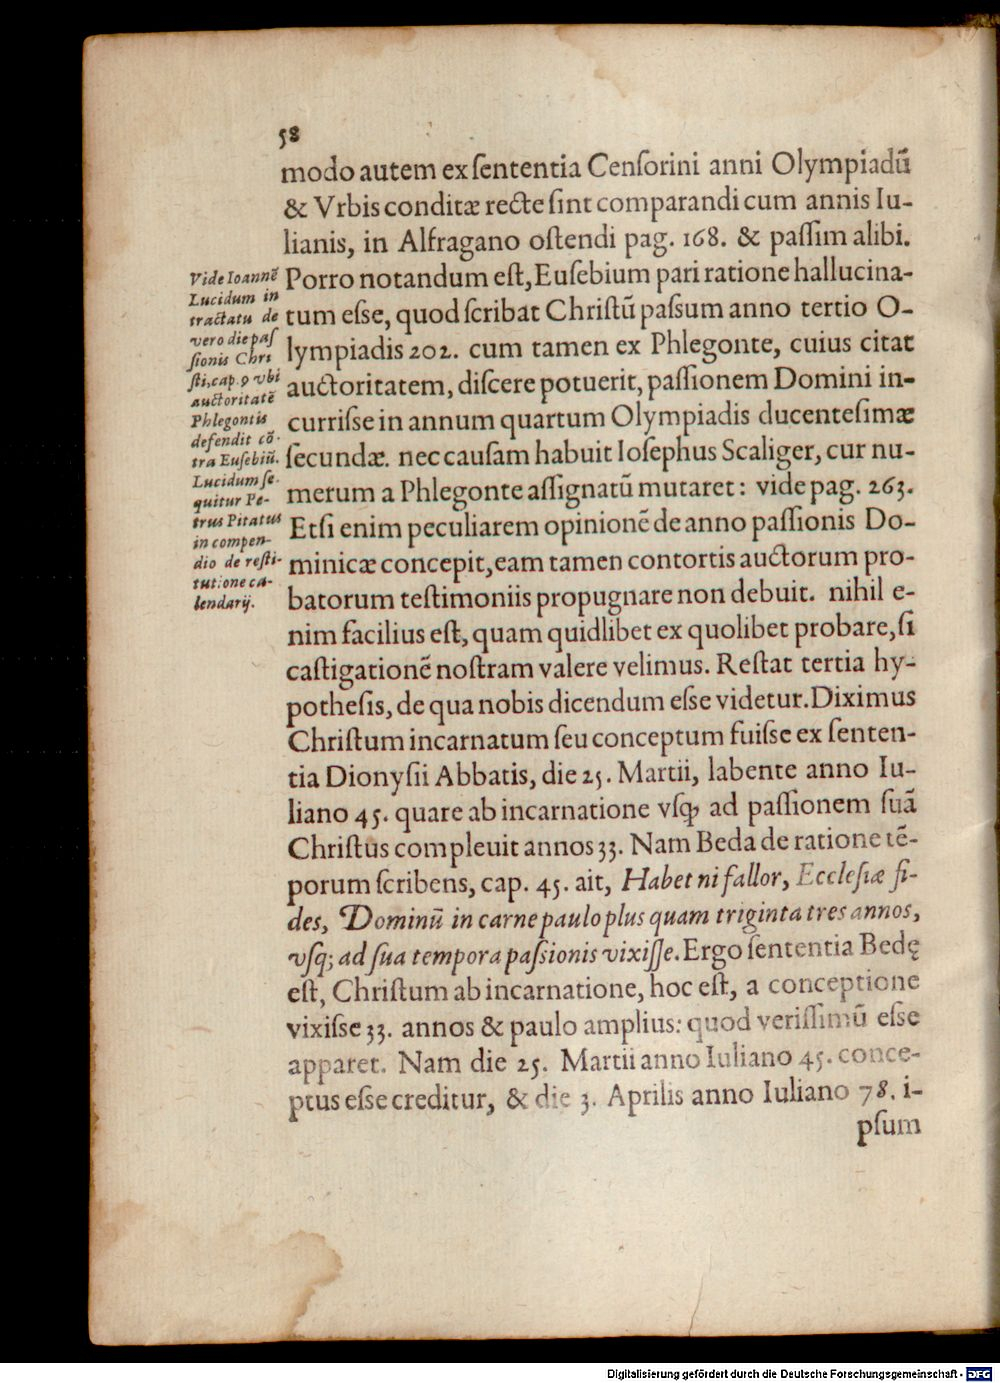 58
modo autem ex ſententia Cenſorini anni Olympiadū
& Vrbis conditæ recte ſint comparandi cum annis Iu-
lianis, in Alfragano oſtendi pag. 168. & paſſim alibi.
Porro notandum eſt, Euſebium pari ratione hallucina-
tum eſse, quod ſcribat Chriſtū paſsum anno tertio O-
lympiadis 202. cum tamen ex Phlegonte, cuius citat
auctoritatem, diſcere potuerit, paſſionem Domini in-
curriſse in annum quartum Olympiadis ducenteſimæ
ſecundæ. nec cauſam habuit Ioſephus Scaliger, cur nu-
merum a Phlegonte aſſignatū mutaret: vide pag. 263.
Etſi enim peculiarem opinionē de anno paſſionis Do-
minicæ concepit, eam tamen contortis auctorum pro-
batorum teſtimoniis propugnare non debuit. nihil e-
nim facilius eſt, quam quidlibet ex quolibet probare, ſi
caſtigationē noſtram valere velimus. Reſtat tertia hy-
potheſis, de qua nobis dicendum eſse videtur. Diximus
Chriſtum incarnatum ſeu conceptum fuiſse ex ſenten-
tia Dionyſii Abbatis, die 25. Martii, labente anno Iu-
liano 45. quare ab incarnatione vſq; ad paſſionem ſuā
Chriſtus compleuit annos 33. Nam Beda de ratione tē-
porum ſcribens, cap. 45. ait, Habet ni fallor, Eccleſiæ fi-
des, Dominū in carne paulo plus quam triginta tres annos,
vſq; ad ſua tempora paſsionis vixiſſe. Ergo ſententia Bedę
eſt, Chriſtum ab incarnatione, hoc eſt, a conceptione
vixiſse 33. annos & paulo amplius: quod veriſſimū eſse
apparet. Nam die 25. Martii anno Iuliano 45. conce-
ptus eſse creditur, & die 3. Aprilis anno Iuliano 78. i-
pſum
Vide Ioannē
Lucidum in
tractatu de
vero die paſ
ſionis Chri
ſti, cap. 9 vbi
auctoritatē
Phlegontis
defendit cō-
tra Euſebiū.
Lucidum ſe-
quitur Pe-
trus Pitatus
in compen-
dio de reſti-
tutione ca-
lendarij.
Digitalisierung gefördert durch die Deutsche Forschungsgemeinschaft - DFG